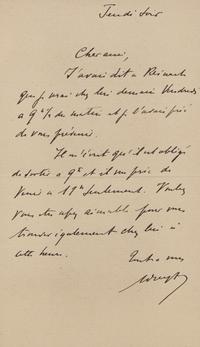 Jeudi soir
Cher ami,
J'avais dit à Reinach
que j'irais chez lui demain Vendredi
à 9h 1/2 du matin et je l'avais prié
de vous prévenir.
Il m'écrit qu'il est obligé
de sortir à 9h et il me prie de
venir à 11h seulement. Voulez
vous être assez aimable pour vous
trouver également chez lui à
cette heure.
Tout à vous